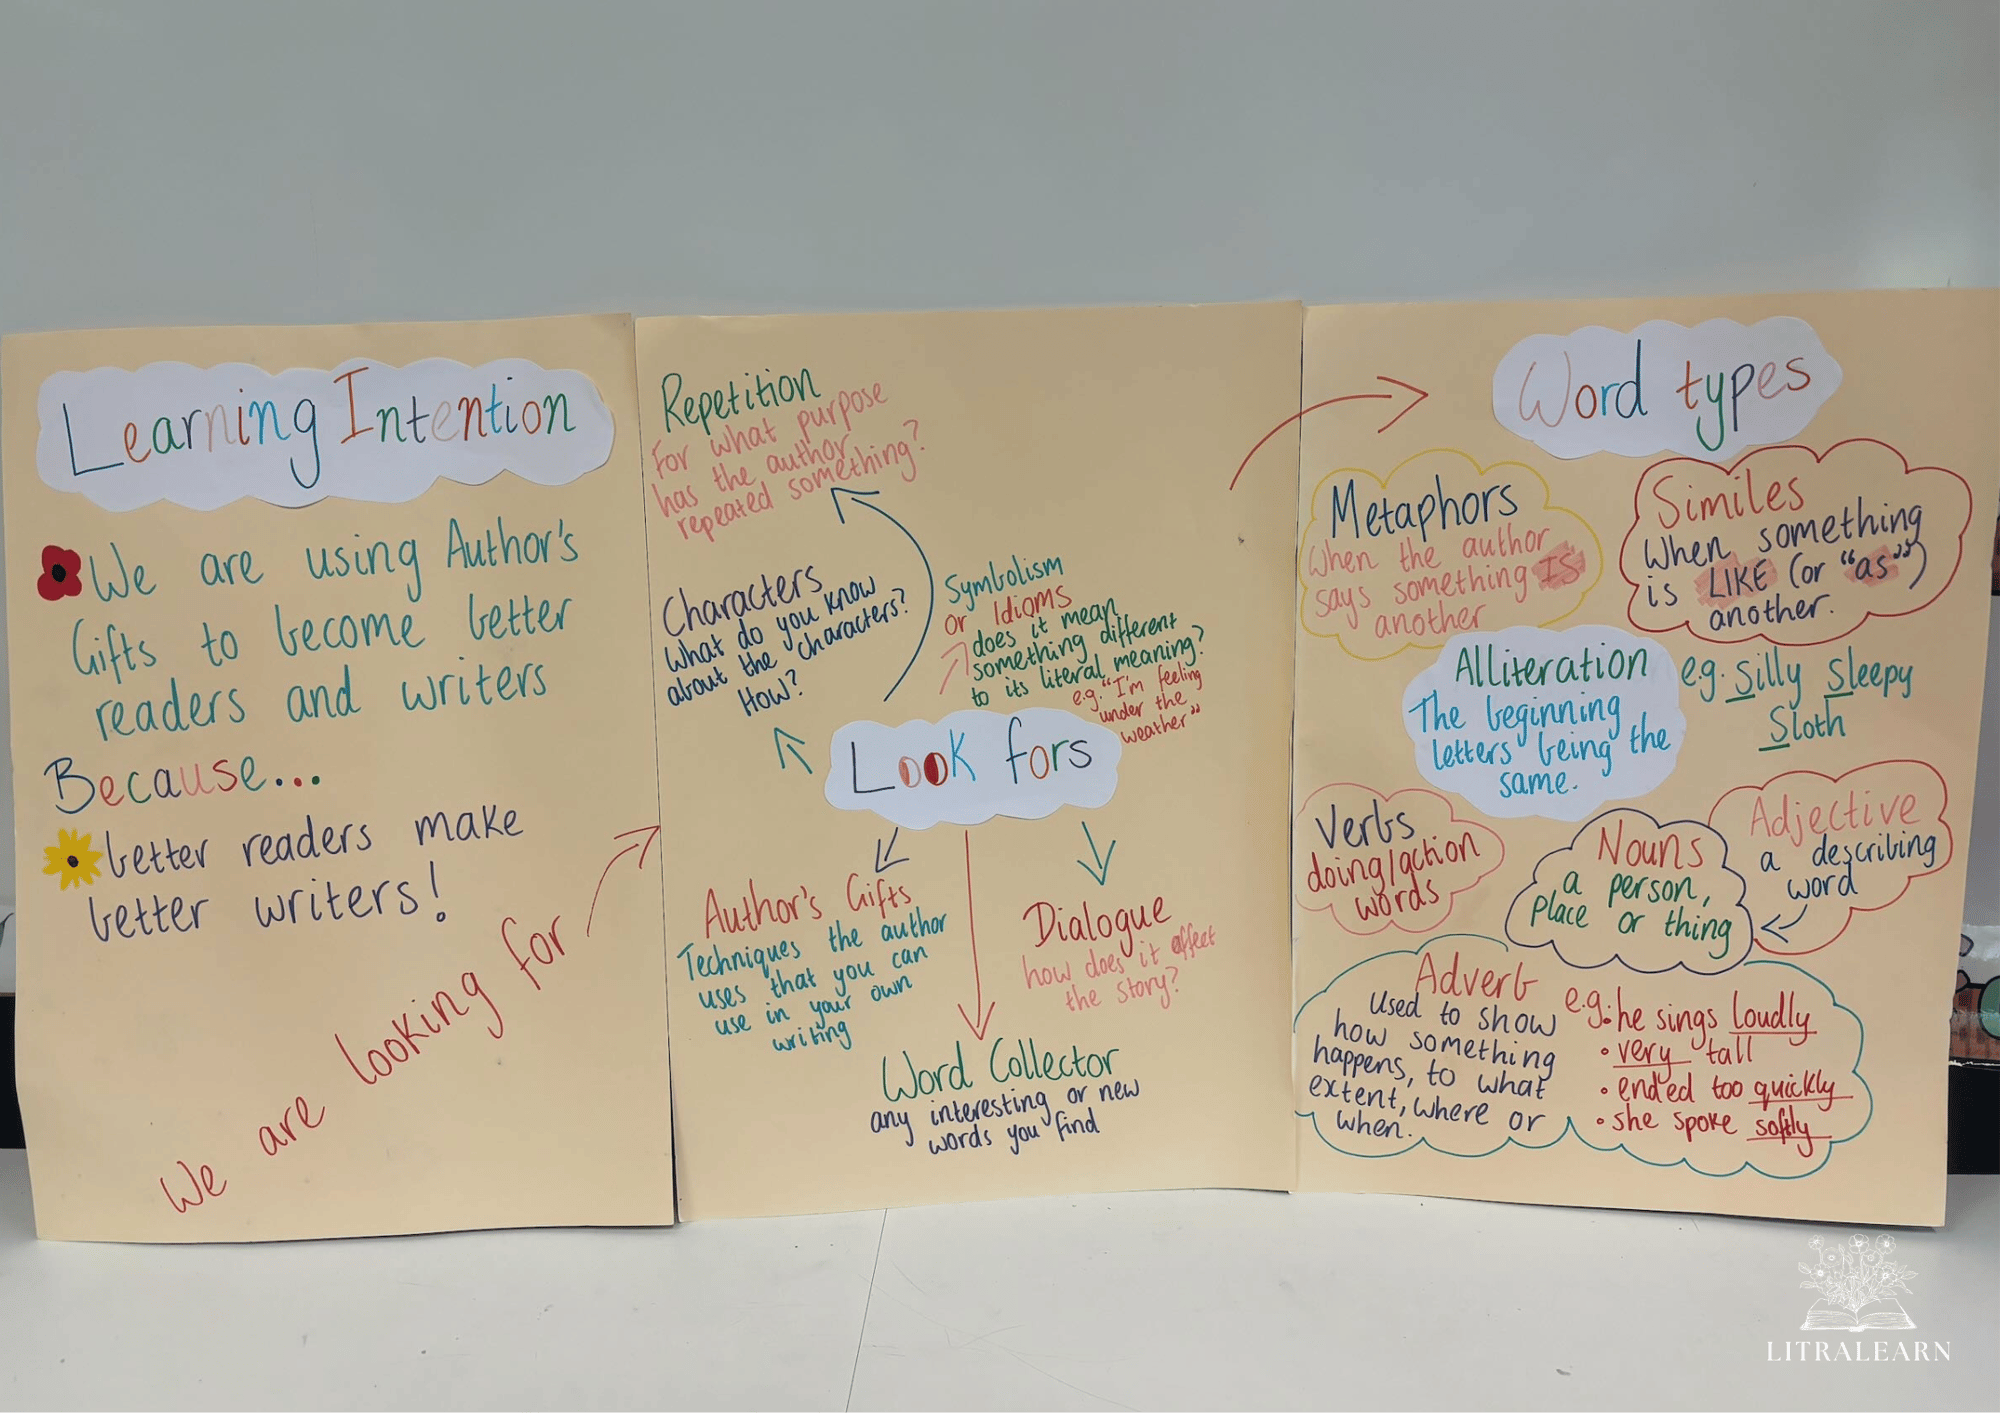 Learning Intention
We are using Author's
Gifts to become better
readers and writers
Because...
better readers make
better writers!
We are looking for
Repetition
For what purpose
has the author
repeated something?
Characters
What do you know
about the characters?
How?
Symbolism
or Idioms
does it mean
something different
to its literal meaning?
e.g. "I'm feeling
under the
weather"
Look fors
Author's Gifts
Techniques the author
uses that you can
use in your own
writing
Dialogue
how does it affect
the story?
Word Collector
any interesting or new
words you find
Word types
Metaphors
When the author
says something IS
another
Similes
When something
is LIKE (or "as")
another.
Alliteration
The beginning
letters being the
same.
e.g. Silly Sleepy
Sloth
Verbs
doing/action
words
Nouns
a person,
place or thing
Adjective
a describing
word
Adverb
Used to show
how something
happens, to what
extent, where or
when.
e.g: he sings loudly
• very tall
• ended too quickly
• she spoke softly
LITRALEARN